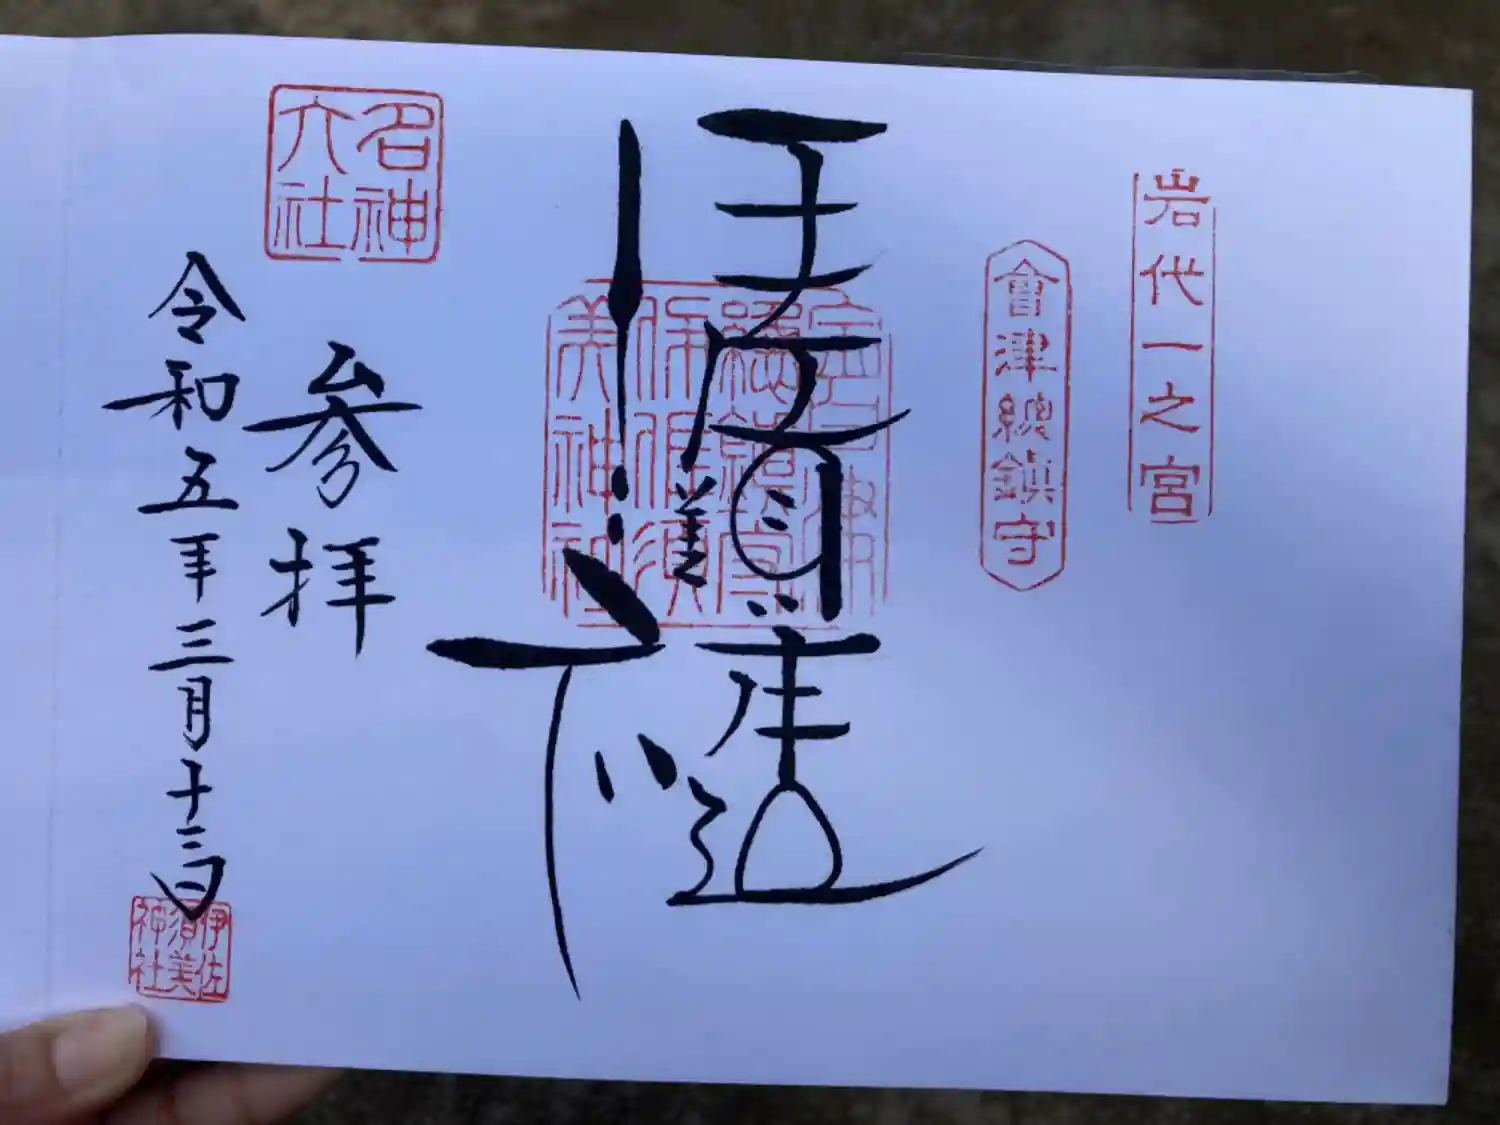 岩代一之宮
會津總鎮守
會津
總鎮守
伊佐須
美神社
名神
六社
参拝
令和五年三月十三日
伊佐
須美
神社